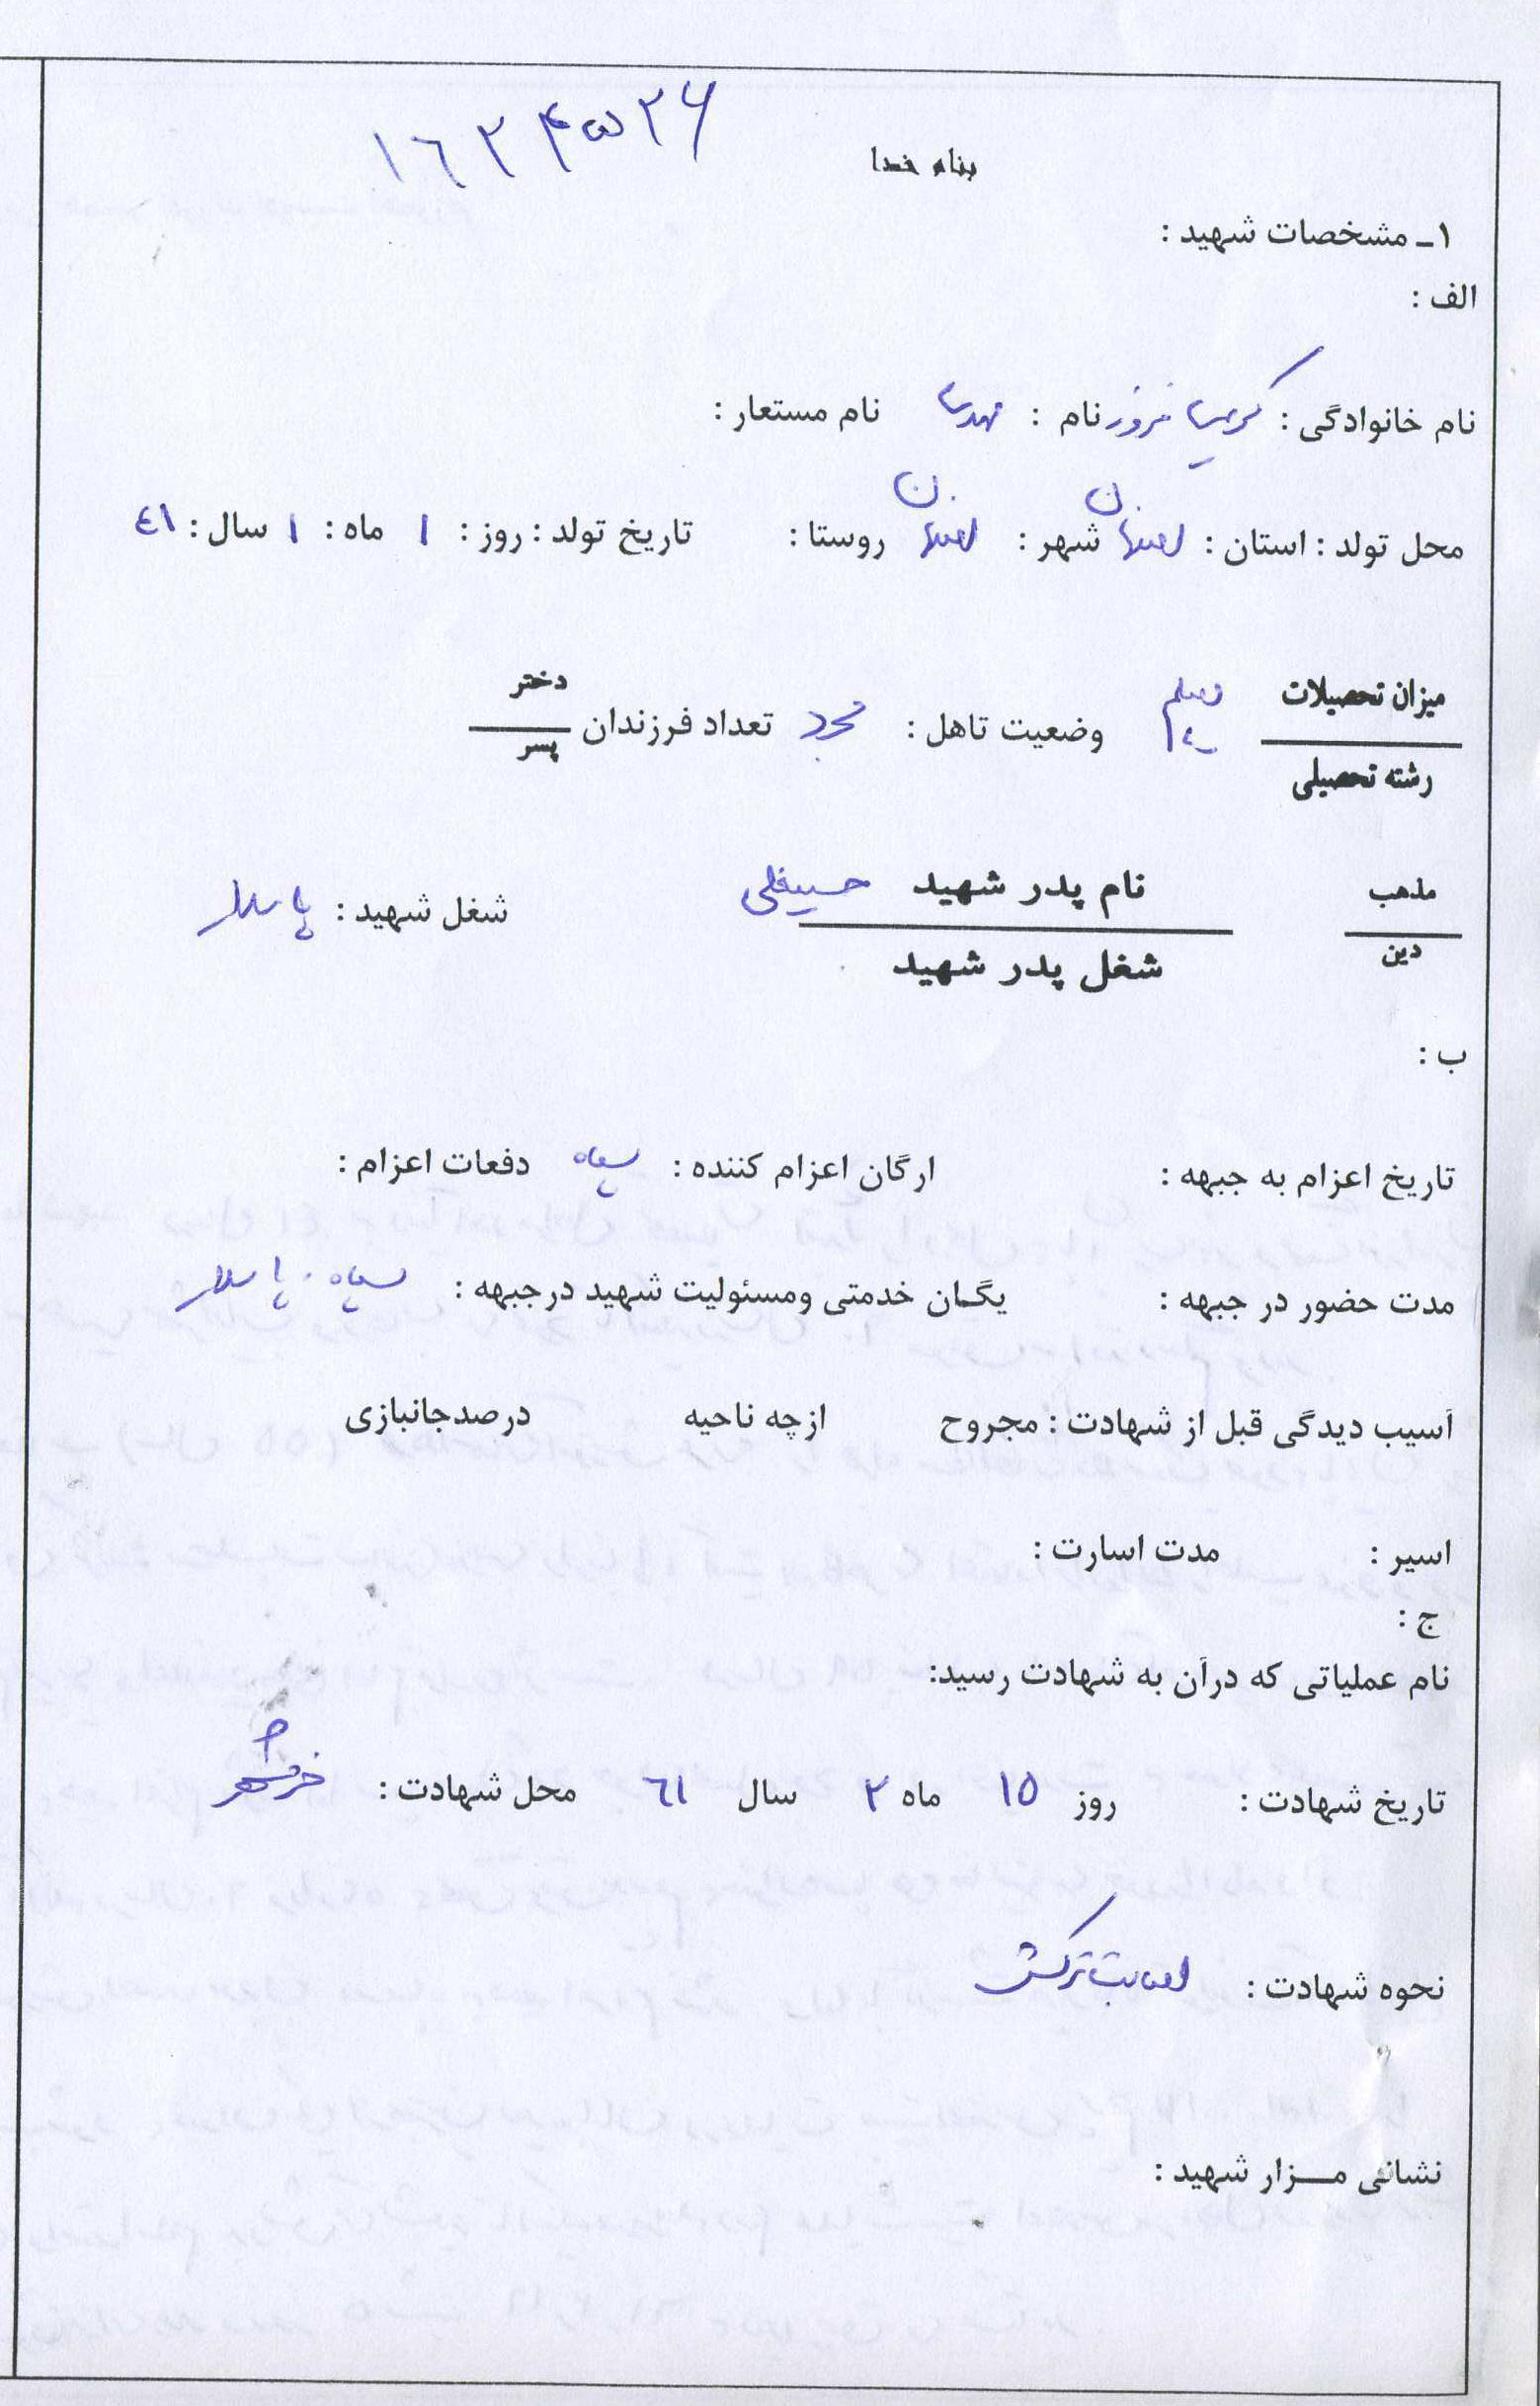 ۱۶۲۴۵۲۶
بنام خدا
۱ـ مشخصات شهید :
الف :
نام خانوادگی : کریمی فروز نام : مهدی نام مستعار :
محل تولد : استان : اصفهان شهر : اصفهان روستا : تاریخ تولد : روز : ۱ ماه : ۱ سال : ٤۱
میزان تحصیلات دیپلم وضعیت تاهل : مجرد تعداد فرزندان دختر
رشته تحصیلی پسر
مذهب نام پدر شهید حسینقلی شغل شهید : پاسدار
دین شغل پدر شهید
ب :
تاریخ اعزام به جبهه : ارگان اعزام کننده : سپاه دفعات اعزام :
مدت حضور در جبهه : یگان خدمتی ومسئولیت شهید درجبهه : سپاه . پاسدار
آسیب دیدگی قبل از شهادت : مجروح ازچه ناحیه درصدجانبازی
اسیر : مدت اسارت :
ج :
نام عملیاتی که درآن به شهادت رسید:
تاریخ شهادت : روز ۱۵ ماه ۲ سال ٦۱ محل شهادت : خرمشهر
نحوه شهادت : اصابت ترکش
نشانی مـزار شهید :